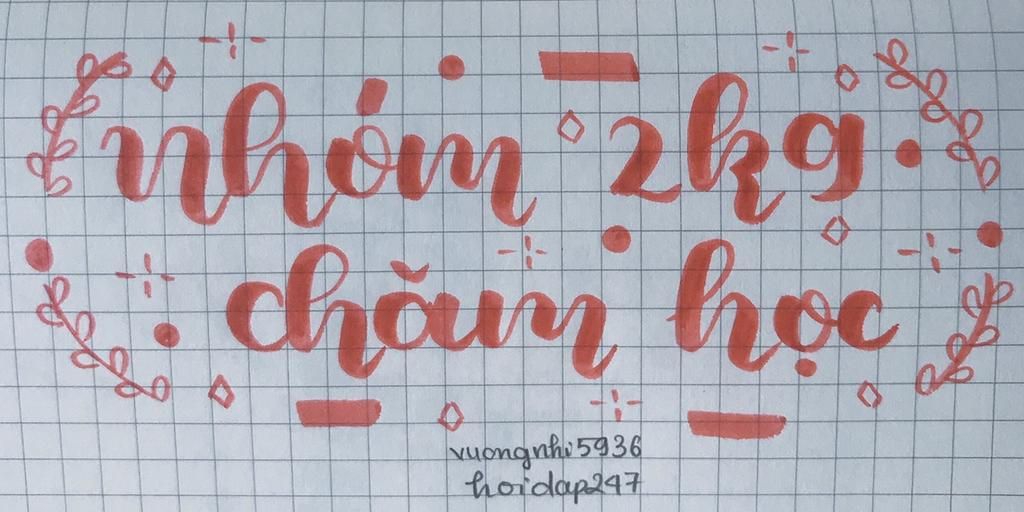 nhóm 2kg
chăm học
vuongnhi5936
hoidap247